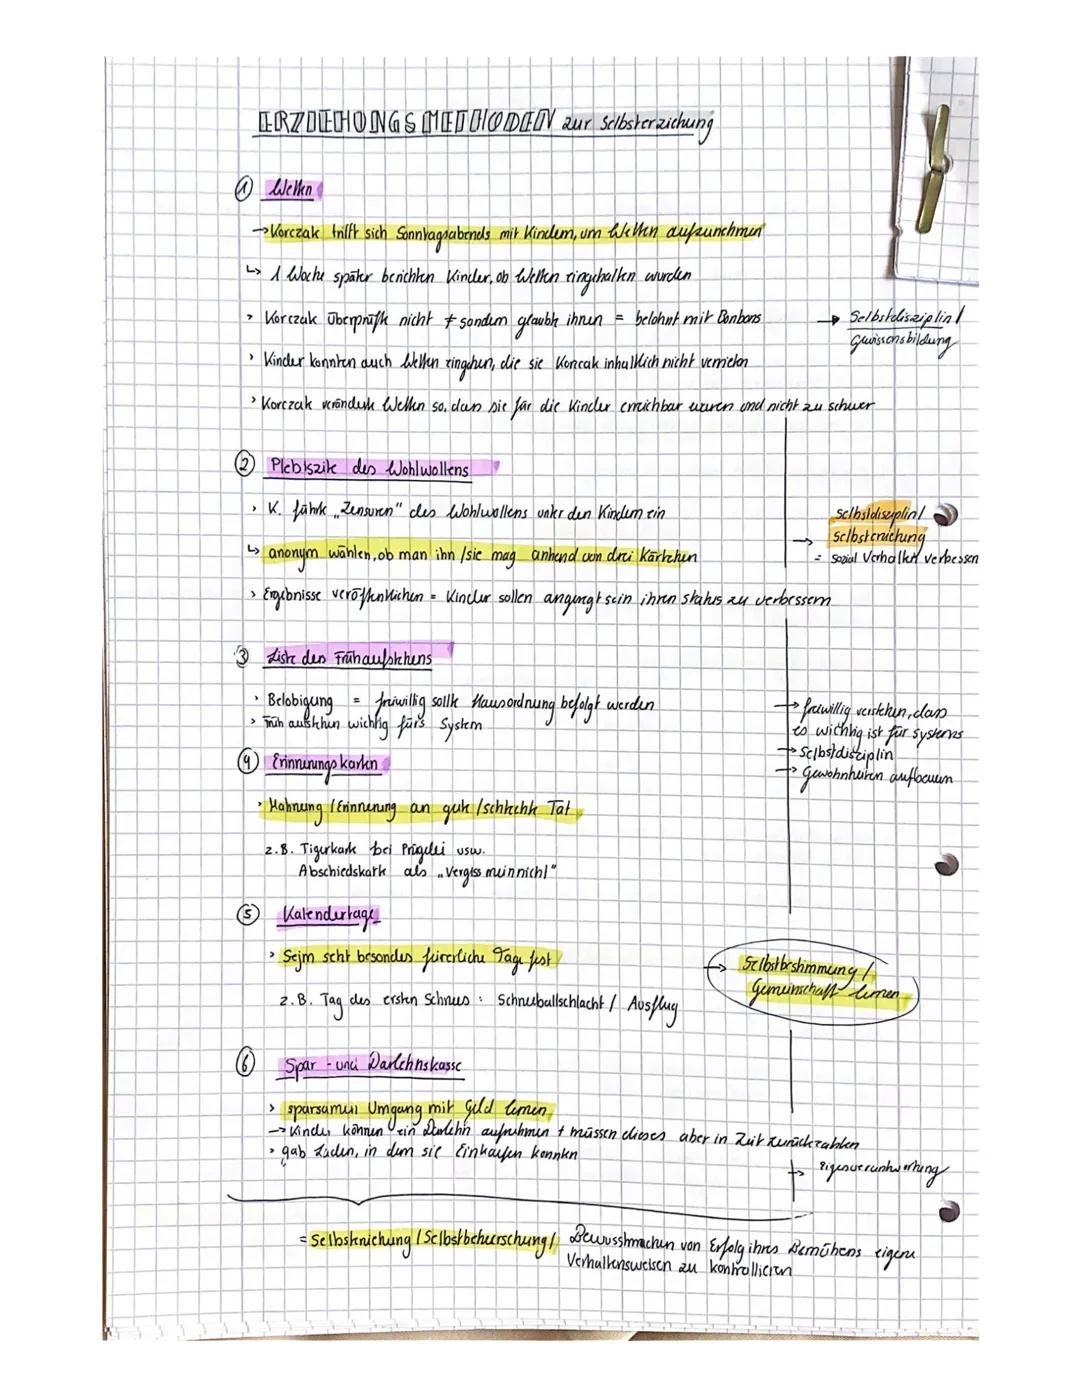 ERZIEHUNGSMETHODEN zur Selbsterziehung
① Wetten
→ Korczak trifft sich Sonntagsabends mit Kindern, um Wetten aufzunehmen
↳ 1 Woche später berichten Kinder, ob Wetten eingehalten wurden
› Korczak überprüfte nicht ≠ sondern glaubte ihnen = belohnt mit Bonbons
→ Selbstdisziplin /
Gewissensbildung
› Kinder konnten auch Wetten eingehen, die sie Korcak inhaltlich nicht verrieten
› Korczak veränderte Wetten so, dass sie für die Kinder erreichbar waren und nicht zu schwer
② Plebiszite des Wohlwollens
› K. führte „Zensuren" des Wohlwollens unter den Kindern ein
↳ anonym wählen, ob man ihn / sie mag anhand von drei Kärtchen
Selbstdisziplin /
→ Selbsterziehung
= Sozial Verhalten verbessern
› Ergebnisse veröffentlichen = Kinder sollen angeregt sein ihren Status zu verbessern
③ Liste des Frühaufstehens
› Belobigung = freiwillig sollte Hausordnung befolgt werden
› Früh aufstehen wichtig fürs System
→ freiwillig verstehen, dass
es wichtig ist für Systems
→ Selbstdisziplin
→ Gewohnheiten aufbauen
④ Erinnerungskarten
› Mahnung / Erinnerung an gute / schlechte Tat
z.B. Tigerkarte bei Prügelei usw.
Abschiedskarte als „Vergiss meinnicht"
⑤ Kalendertage
› Sejm seht besondes feierliche Tage fest
z.B. Tag des ersten Schnees : Schneeballschlacht / Ausflug
→ Selbstbestimmung /
Gemeinschaft lernen
⑥ Spar- und Darlehnskasse
› sparsamen Umgang mit Geld lernen
→ Kinder können ein Darlehn aufnehmen + müssen dieses aber in Zeit zurückzahlen
› gab Laden, in dem sie Einkaufen konnten
→ Eigenverantwortung
= Selbsterziehung / Selbstbeherrschung / Bewusstmachen von Erfolg ihres Bemühens eigene
Verhaltensweisen zu kontrollieren